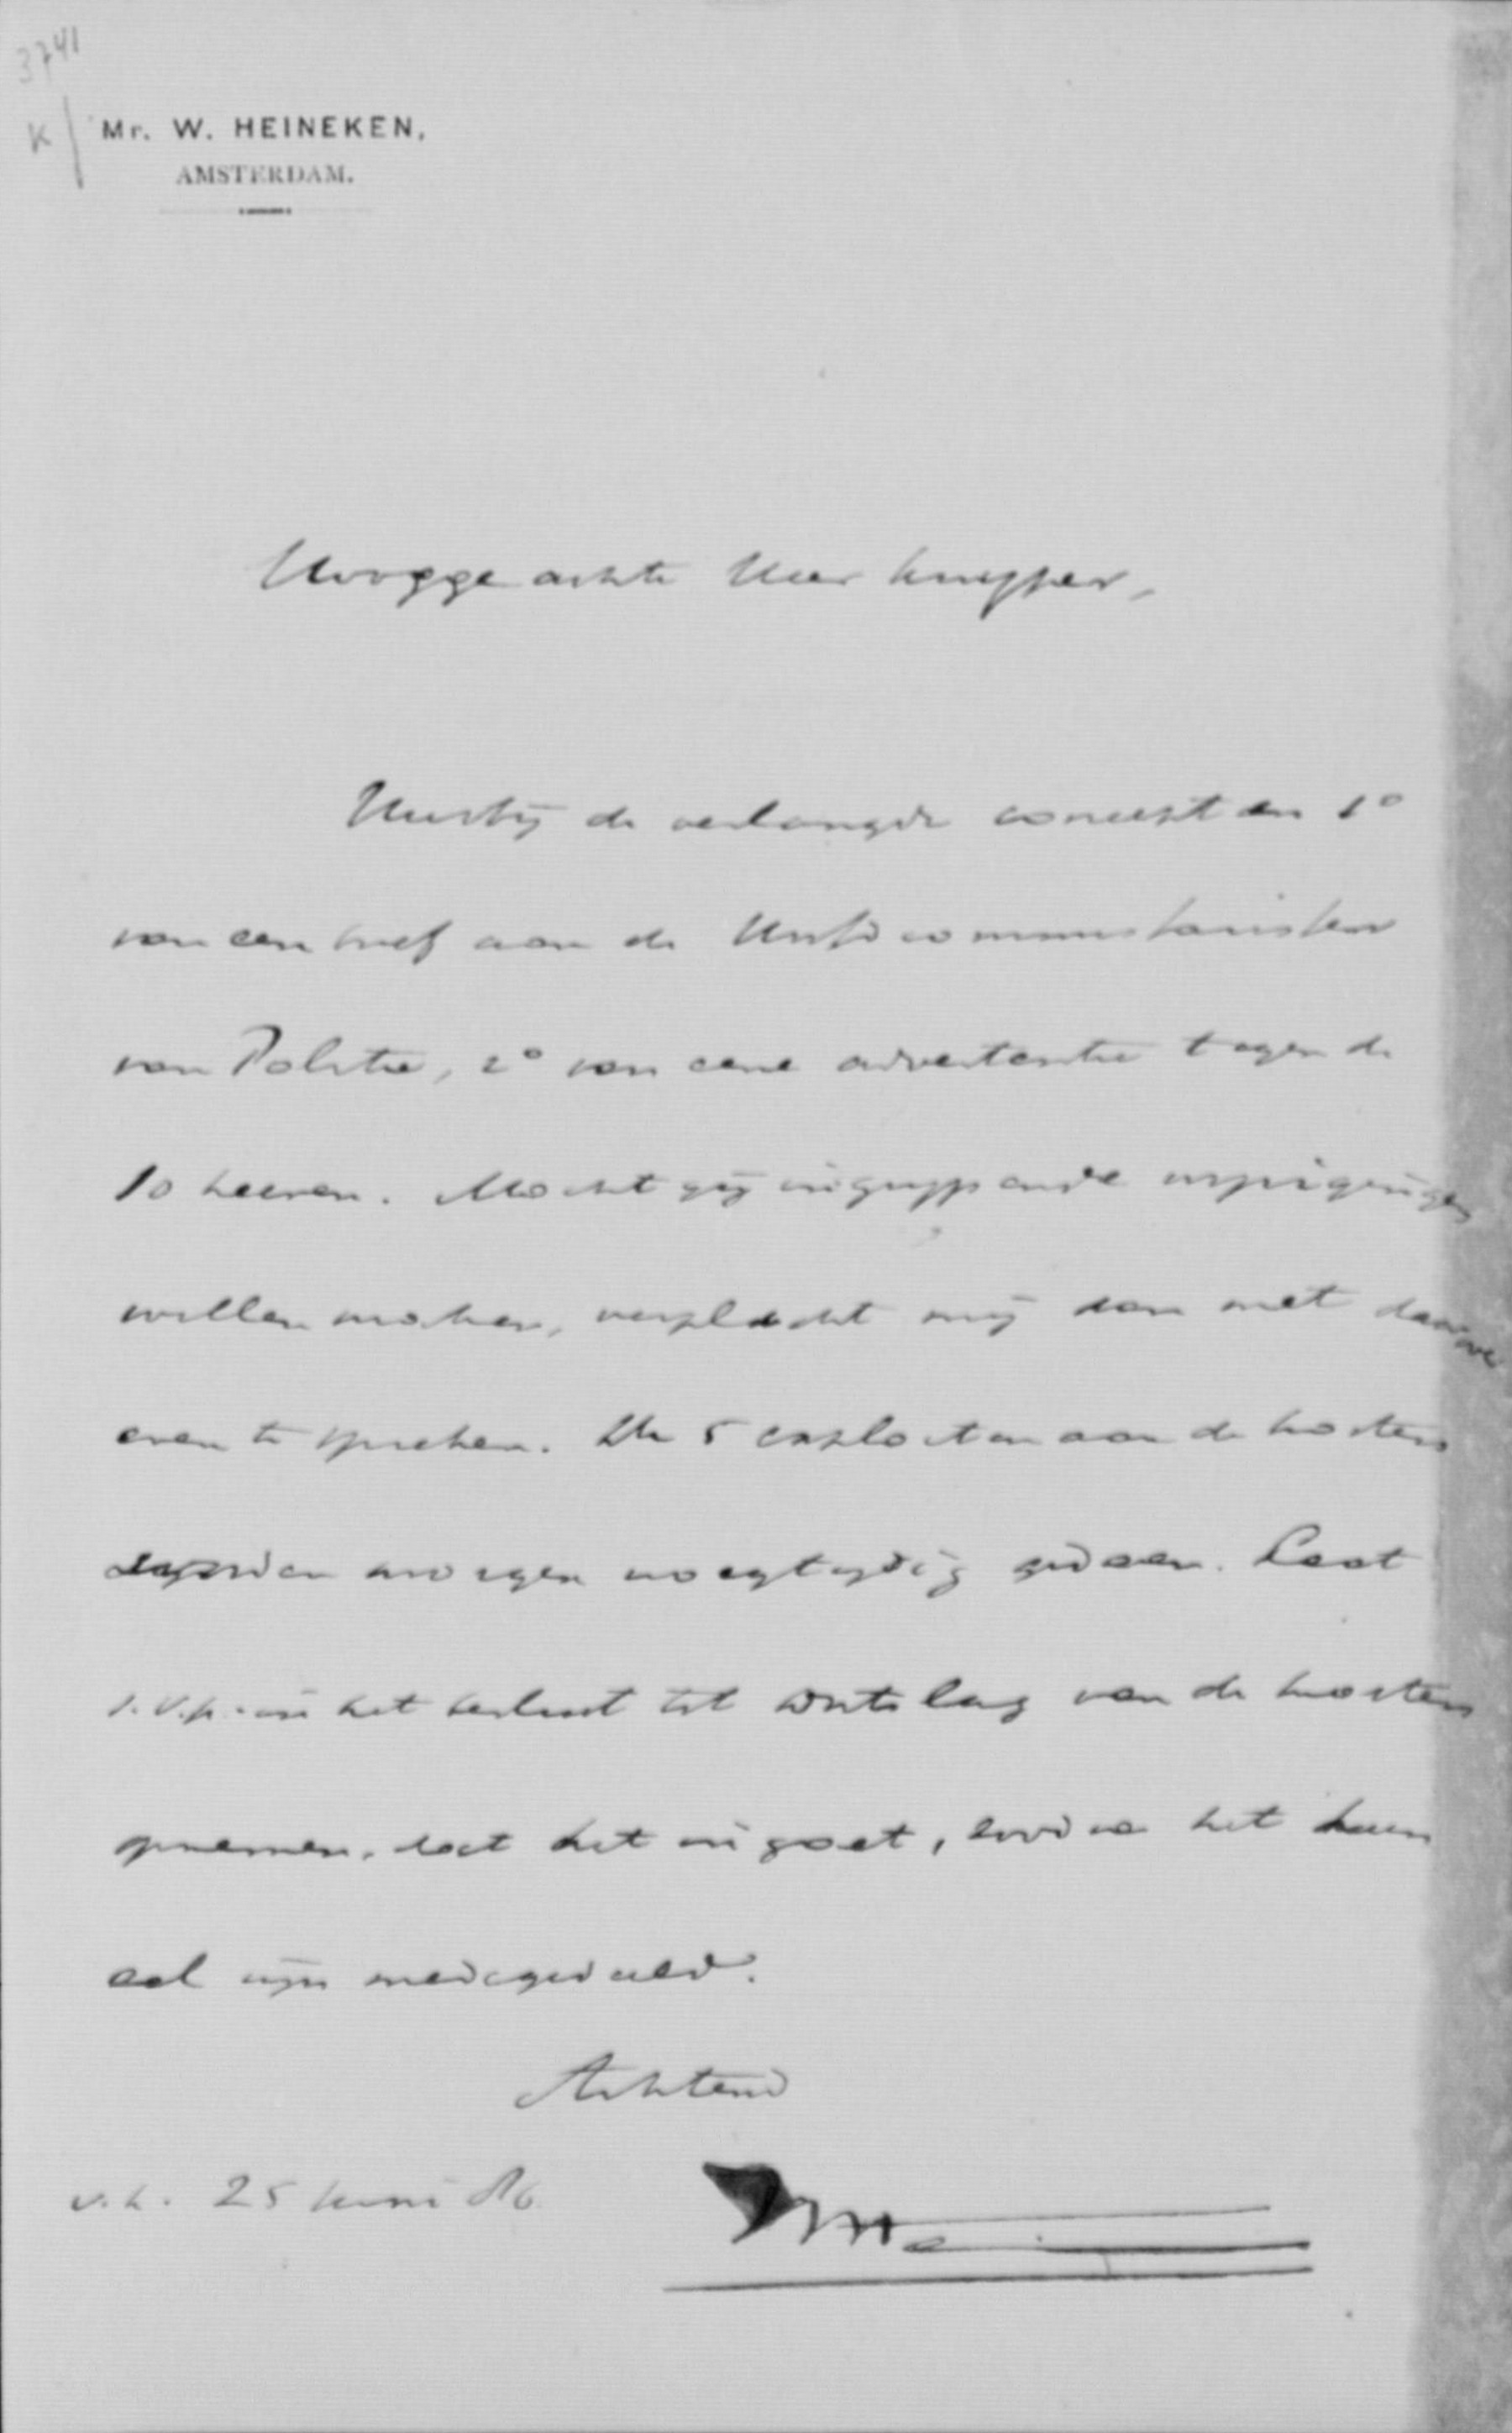 3741
K
Mr. W. HEINEKEN,
AMSTERDAM.
Hooggeachte Heer Kuyper,
Hierbij de verlangde concepten 1°
van een brief aan de Hoofdcommissarissen
van Politie, 2° van eene advertentie tegen de
10 heeren. Mocht gij ingrijpende wijzigingen
willen maken, verplicht mij dan met daarover
even te spreken. De 5 exploiten aan de kosters
worden morgen vroegtijdig gedaan. Laat
s.v.p. in het besluit tot ontslag van de kosters
opnemen, dat het ingaat, zoodra het hun
zal zijn medegedeeld.
Achtend
v.h. 25 Juni 86